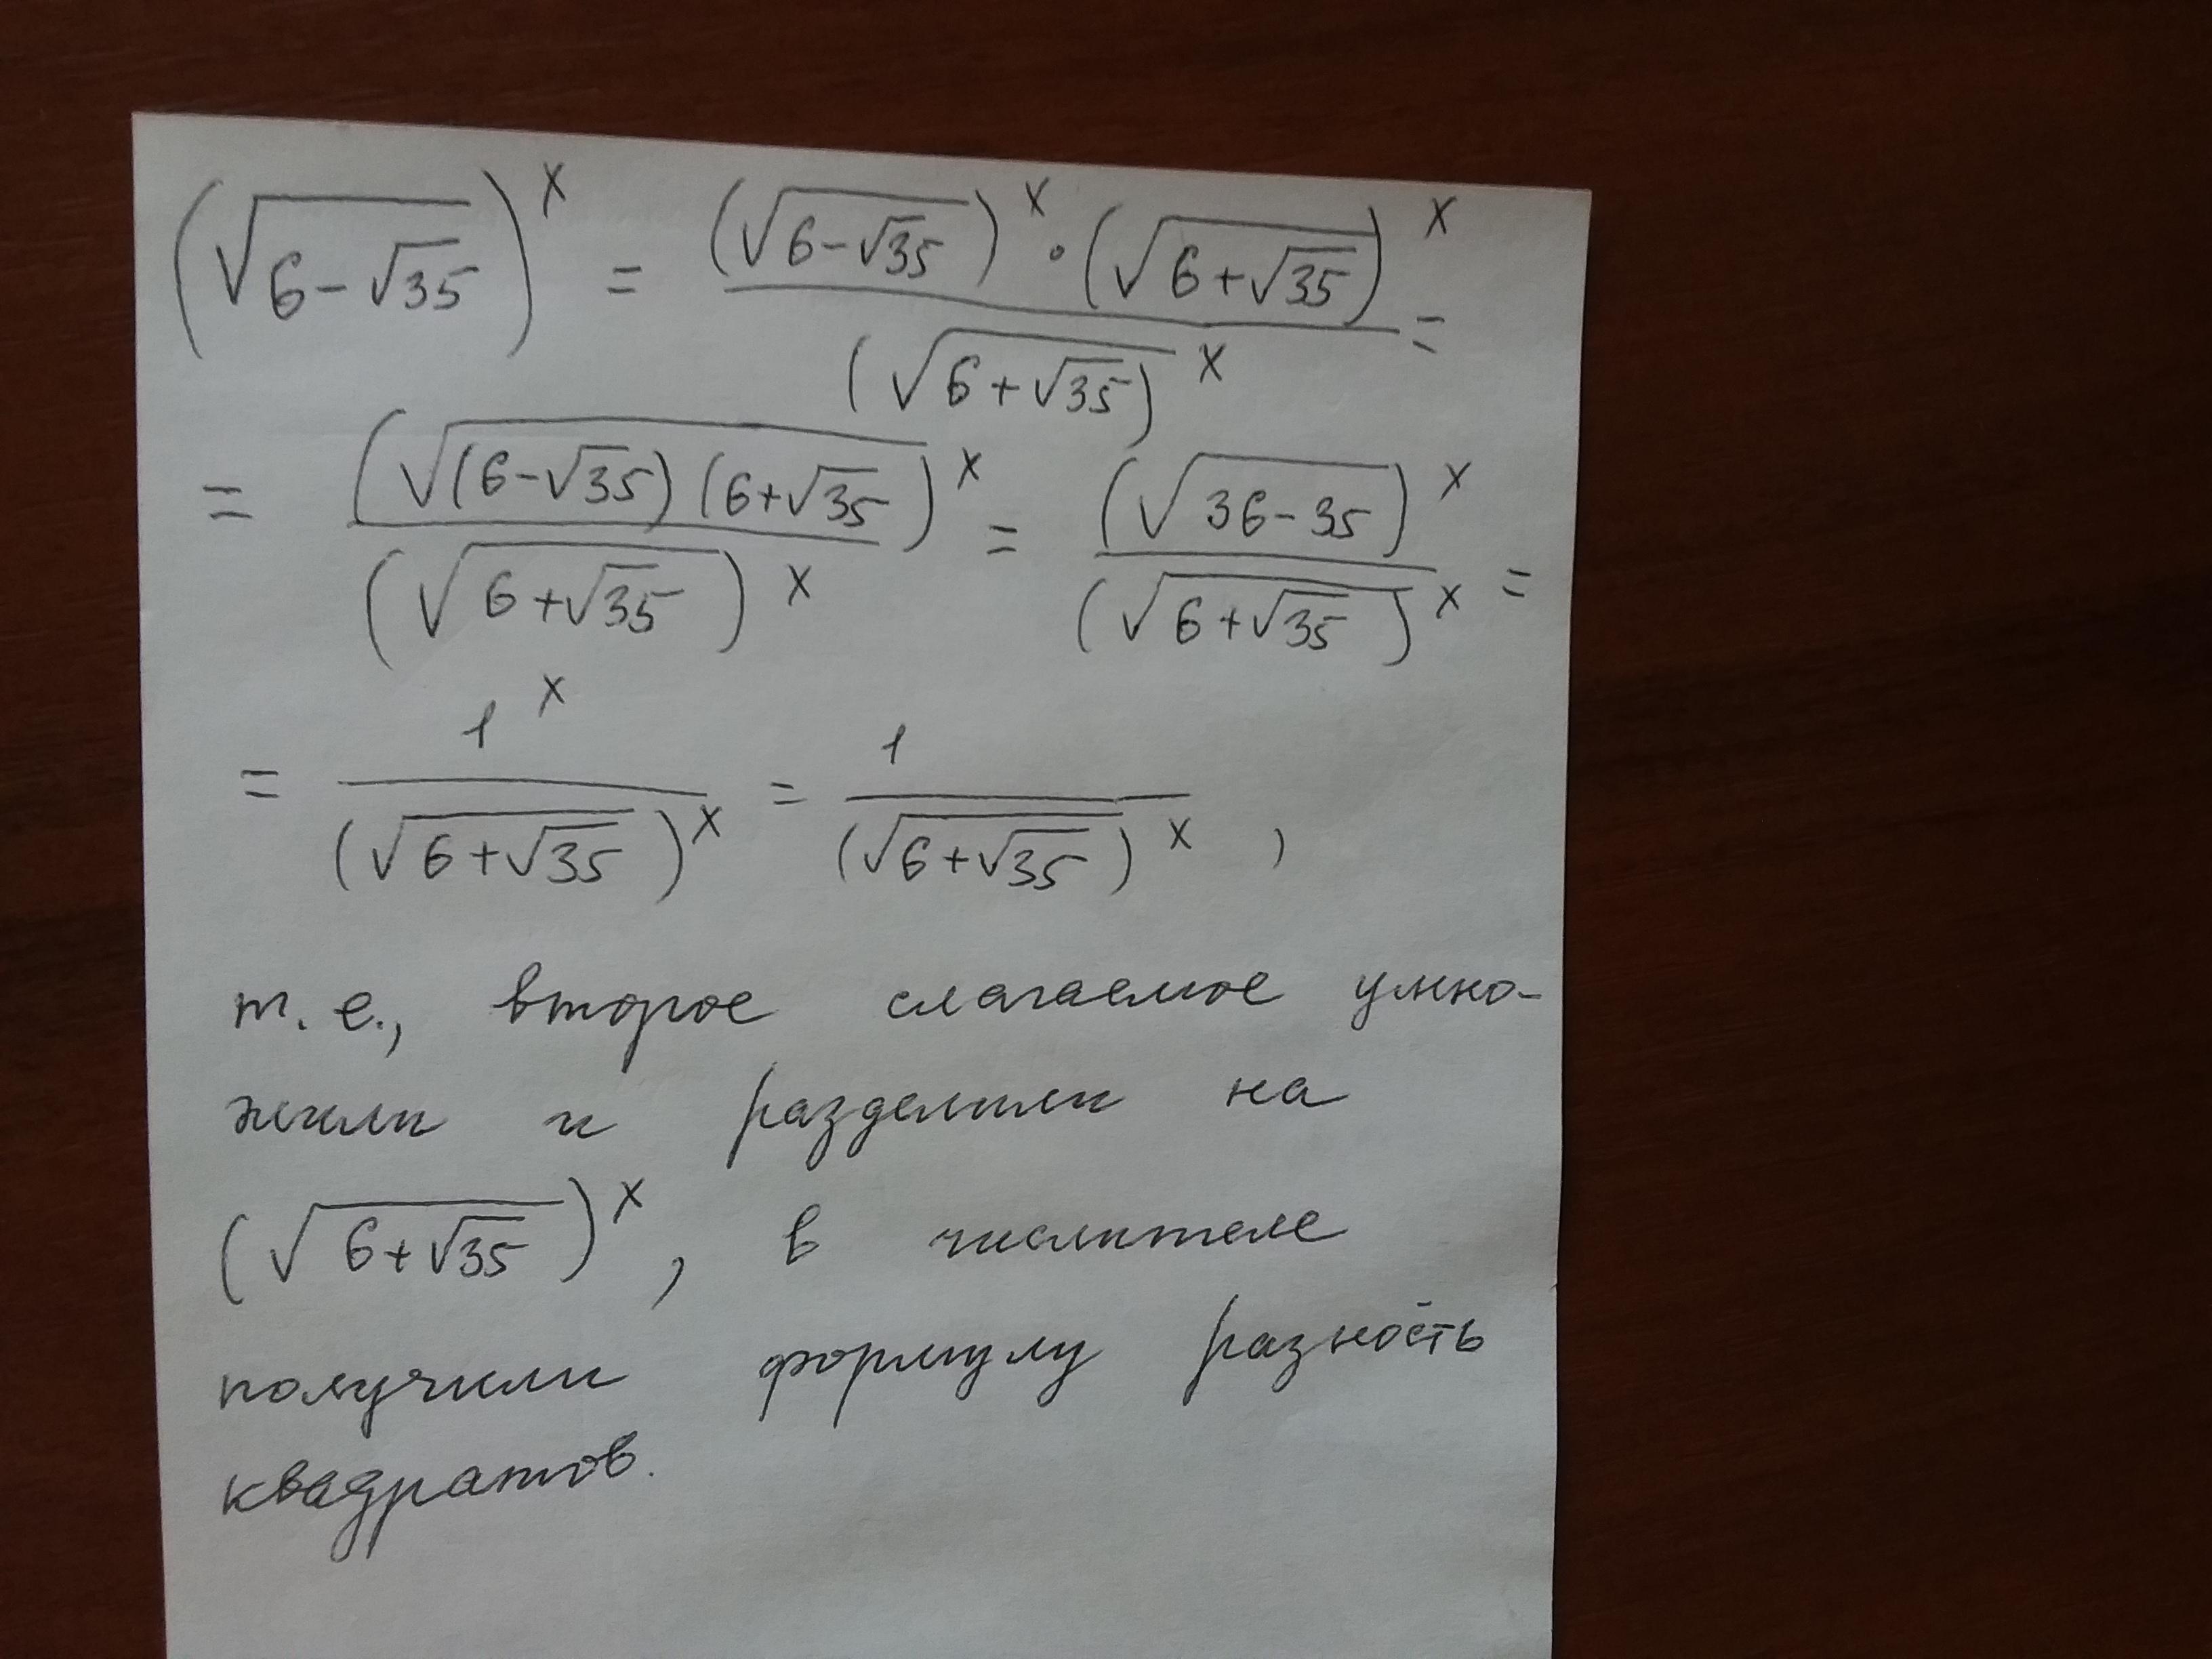 (√(6-√35))^x = ((√(6-√35))^x · (√(6+√35))^x) / (√(6+√35))^x =
= (√((6-√35)(6+√35)))^x / (√(6+√35))^x = (√(36-35))^x / (√(6+√35))^x =
= 1^x / (√(6+√35))^x = 1 / (√(6+√35))^x ,
т.е., второе слагаемое умно-
жили и разделили на
(√(6+√35))^x, в числителе
получили формулу разность
квадратов.